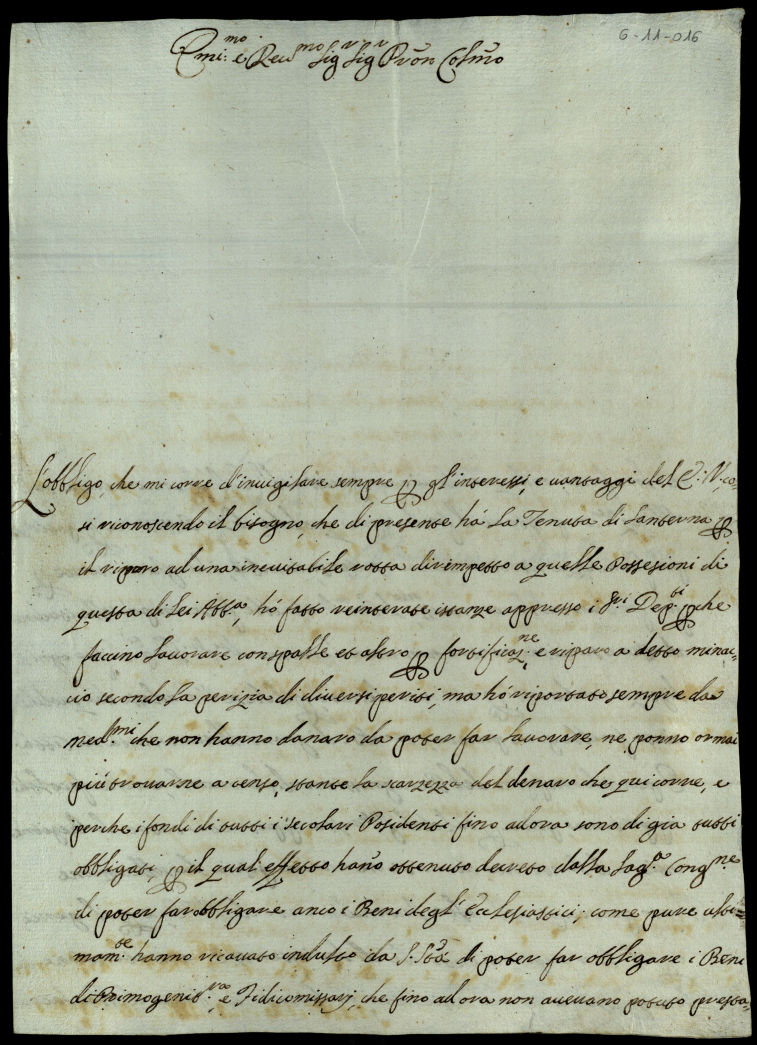 6-11-016
Emi.mo e Reu.mo Sig.r Sig.r Pron Colmo
L'obbligo, che mi corre d'inuigilare sempre p gl'interessi, e uantaggi del E. V. co-
si riconoscendo il bisogno, che di presente há la Tenuta di Lanterna p
il riparo ad una ineuitabile rotta dirimpetto a quelle Possesioni di
questa di Lei Abb.a, hó fatto reinterate istanze appresso i SS.ri Dep.ti pche
faccino lauorare con spalle et altro p fortificaz.ne, e riparo a detto minac-
cio secondo la perizia di diuersi periti, ma hó riportato sempre da
med.mi che non hanno danaro da poter far lauorare, ne ponno ormai
piú trouarne a censo, stante la scarzezza del denaro che qui corre, e
perche i fondi di tutti i secolari Posidenti fino ad ora sono di gia tutti
obbligati, p il qual effetto hano ottenuto decreto dalla Sag.a Cong.ne
di poter far obbligare anco i Beni degl'Ecclesiastici; come pure ulti=
mam.te hanno ricauato indulto da S. Stà di poter far obbligare i Beni
di Primogenit.ra e Fidicomissarj, che fino ad ora non aueuano potuto presta-